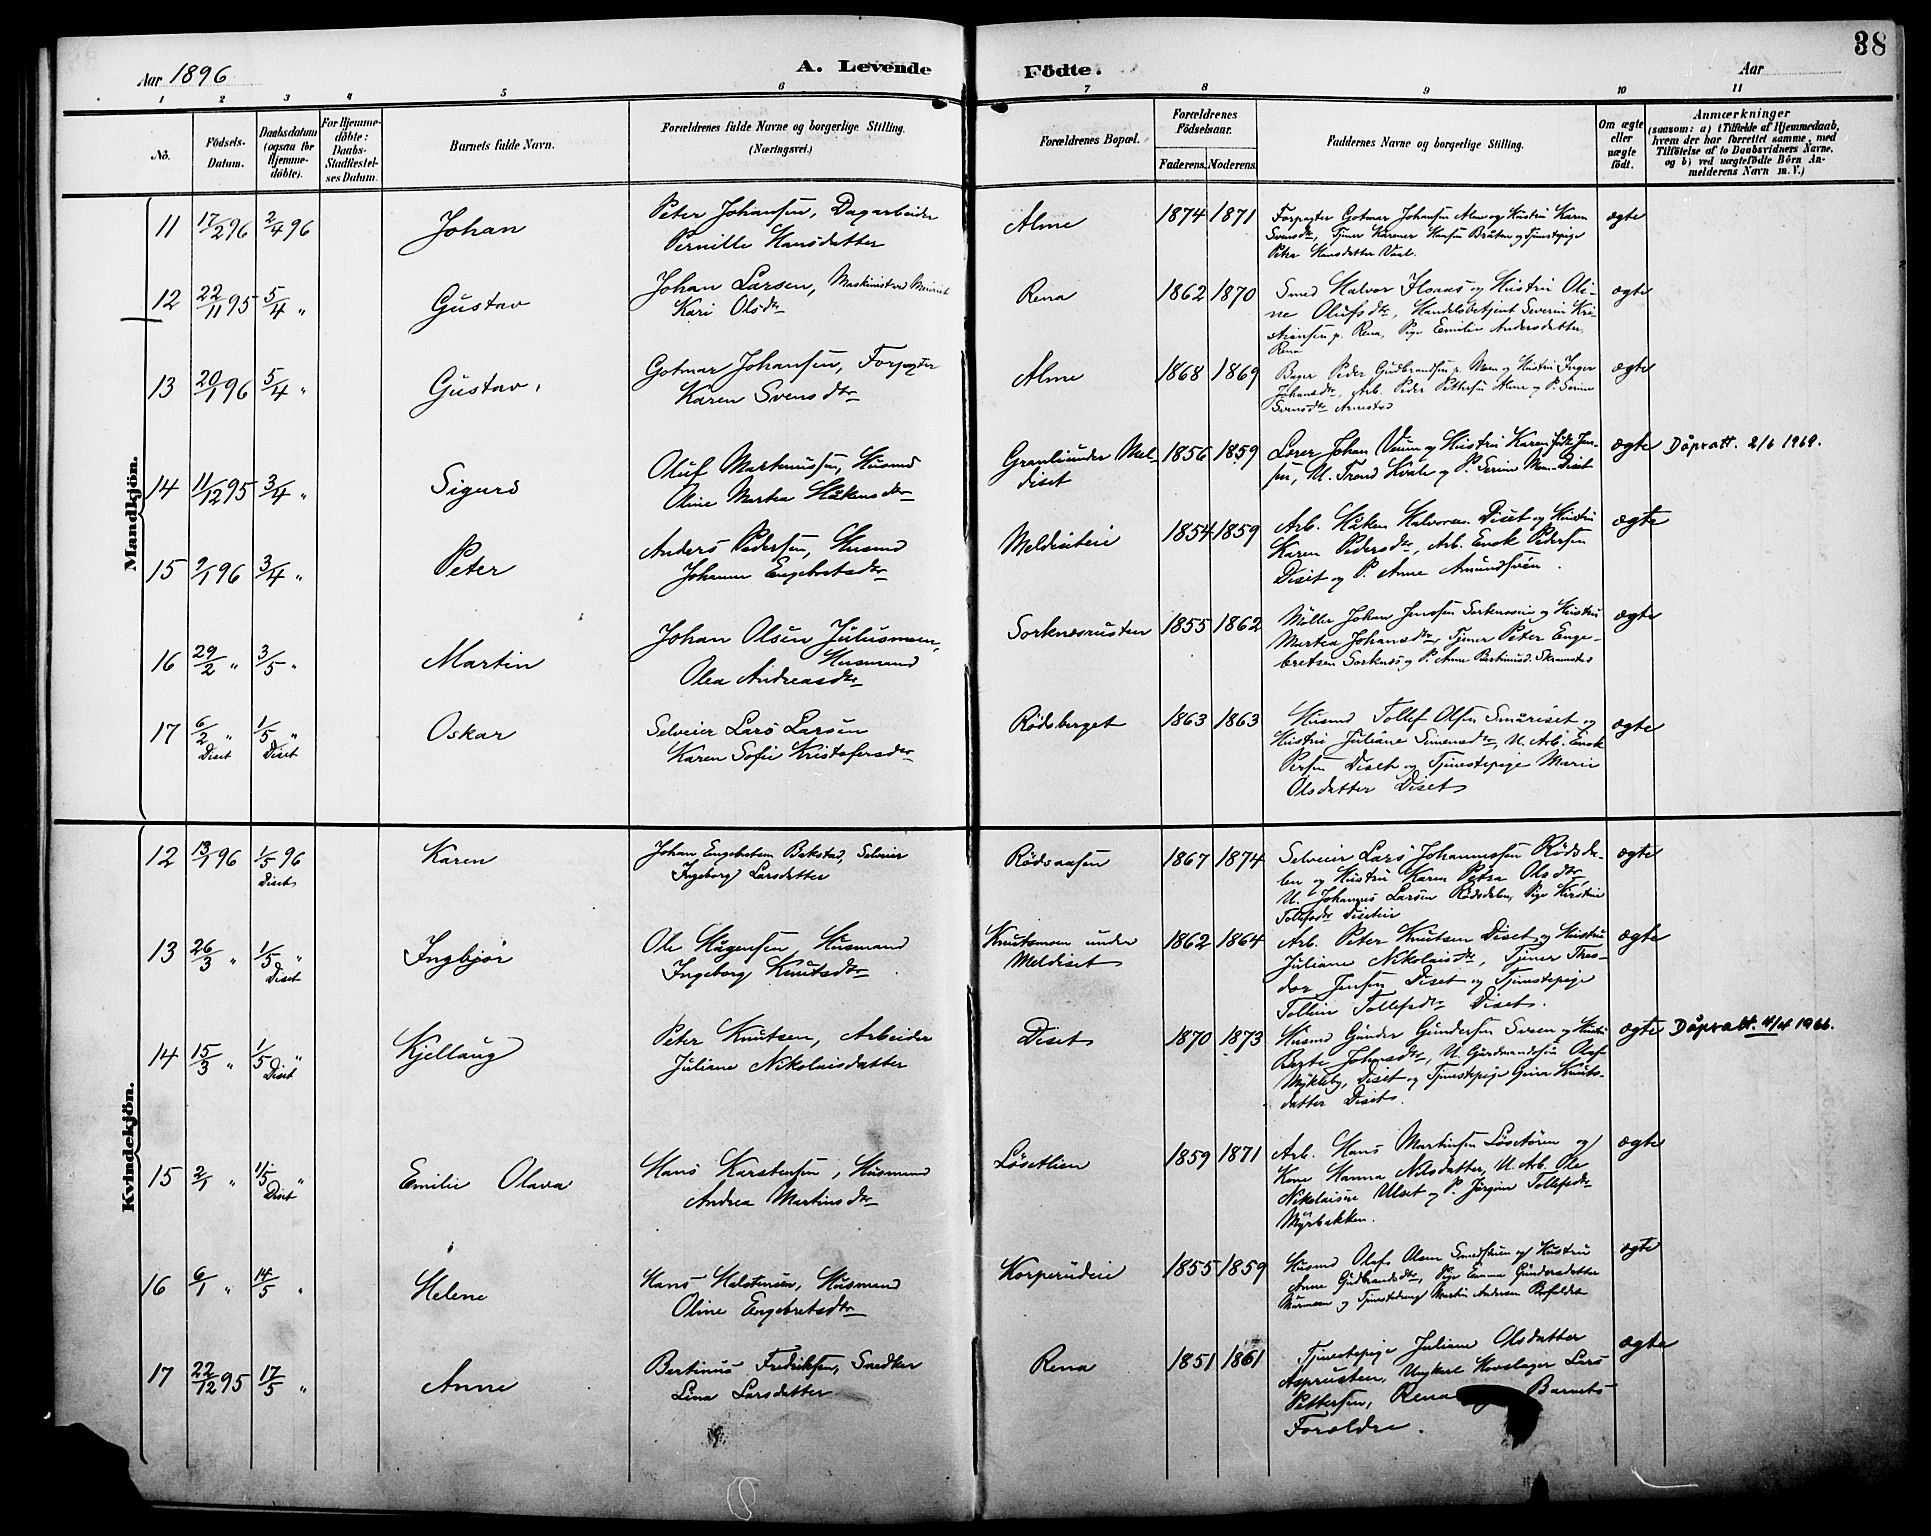 38
Aar 1896
A. Levende
Födte.
Aar
1 2 3 4 5 6 7 8 9 10 11
No.
Födsels-
Datum.
Daabsdatum
(ogsaa for
Hjemme-
döbte).
For Hjemme-
döbte:
Daabs-
Stadfæstel-
ses Datum.
Barnets fulde Navn.
Forældrenes fulde Navne og borgerlige Stilling.
(Næringsvei.)
Forældrenes Bopæl.
Forældrenes
Födselsaar.
Faderens. Moderens.
Faddernes Navne og borgerlige Stilling.
Om ægte
eller
uægte
födt.
Anmærkninger
(saasom: a) i Tilfælde af Hjemmedaab,
hvem der har forrettet samme, med
Tilföielse af to Daabsvidners Navne,
og b) ved uægtefödte Börn An-
melderens Navn m. V.)
Mandkjön.
11 17/2 96 2/4 96 Johan
Peter Johansen, Dagarbeider
Pernille Hansdatter
Alme 1874 1871
Forpagter Gotmar Johansen Alme og Hustru Karen
Svensdtr, Tjener Karener Hansen Bråten og Tjenestepige
Petra Hansdatter
ægte
12 22/11 95 5/4 " Gustav
Johan Larsen, Maskinist ved Meieriet
Kari Olsdtr
Rena 1862 1870
Smed Halvor Haas og Hustru Oli-
ne Olufsdtr, Handelsbetjent Severin Kri-
stiansen p. Rena, Pige Emilie Andersdatter
Rena
ægte
13 20/1 96 5/4 " Gustav.
Gotmar Johansen, Forpagter
Karen Svensdtr
Alme 1868 1869
Bager Peder Gudbrandsen p. Moen og Hustru Inger
Johansdtr, Arb. Peder Pettersen Alme og P. Serine
Svensdtr
ægte
14 11/12 95 3/4 " Sigurd
Oluf Martinussen, Husmd
Oline Martea Håkensdtr
Granli under Mel-
diset
1856 1859
Lærer Johan Veum og Hustru Karen født Jen-
sen, U. Trond Kvale og P. Serine Moen Diset
ægte Dåpsatt. 2/6 1969.
15 2/1 96 3/4 " Peter
Anders Pedersen, Husmd
Johanne Engebretsdtr
Meldiseteie 1854 1859
Arb. Håken Halvorsen Diset og Hustru
Karen Pedersdtr, Arb. Enok Pedersen
Diset og P. Anne Amundsveen.
ægte
16 29/2 " 3/5 " Martin
Johan Olsen Julusmoen,
Husmand
Olea Andreasdtr
Sorknæsrusten 1855 1862
Møller Johan Jenssen Sorknæseie og Hustru
Martea Johansdtr, Tjener Peter Enge-
bretsen Sorknæs og P. Anne Bertinusd. Skramstad
ægte
17 6/2 " 1/5 " Oskar
Diset Diset
Selveier Lars Larsen
Karen Sofie Kristofersdtr
Rødsberget 1863 1863
Husmd Tollef Olsen og
Hustru Juliane Simensdtr, U. Arb. Enok
Persen Diset og Tjenestepige Marie
Olsdatter Diset
ægte
Kvindekjön.
12 13/1 96 1/5 96 Karen
Diset
Johan Engebretsen Bakstad, Selveier
Ingeborg Larsdatter
Rødsaasen 1867 1874
Selveier Lars Johannessen Rødsda-
len og Hustru Karen Petra Olsdtr,
U. Johannes Larsen Rødsdalen, Pige Kirstine
Tollefsdtr Diseteie
ægte
13 26/3 " 1/5 " Ingbjør
Diset
Ole Hågensen, Husmand
Ingeborg Knutsdtr
Knutsmoen under
Meldiset
1862 1864
Arb. Peter Knutsen Diset og Hustru
Juliane Nikolaisdtr, Tjener Theo-
dor Jensen Diset og Tjenestepige
Tolline Tollefsdtr Diset.
ægte
14 15/3 " 1/5 " Kjellaug
Diset
Peter Knutsen, Arbeider
Juliane Nikolaisdatter
Diset 1870 1873
Husmd Gunder Gundersen Sveen og Hustru
Berte Johansdtr, U. Gårdmandssøn Olaf
Mykleby, Diset og Tjenestepige Knuts-
datter Diset.
ægte Dåpsatt. 4/4 1966.
15 2/1 " 1/5 " Emilie Olava
Diset
Hans Karstensen, Husmand
Andrea Martinsdtr
Løsetlien 1859 1871
Arb. Hans Martinsen Løsetøren og
Kone Hanna Nilsdatter, U. Arb. Ole
Nikolaisen Ulset og P. Jørgine Tollefsdtr
Myrbakken.
ægte
16 6/1 " 14/5 " Helene
Hans Halstensen, Husmand
Oline Engebretsdtr
Korperudeie 1855 1859
Husmd Olaf Olsen og Hustru
Anne Gudbrandsdtr, Pige Emma Gundersdatter
og Tjenestedreng Martin Andersen
ægte
17 22/12 95 17/5 " Anne
Bertinus Fredriksen, Snedker
Lina Larsdatter
Rena 1851 1861
Tjenestepige Juliane Olsdatter
Asprusten, Ungkarl Hovslager Lars
Pettersen, Rena Barnets
Forældre.
ægte